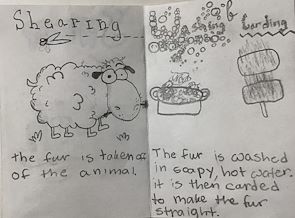 Shearing
the fur is taken off
of the animal.
Washing & Carding
The fur is washed
in soapy, hot water.
it is then carded
to make the fur
straight.